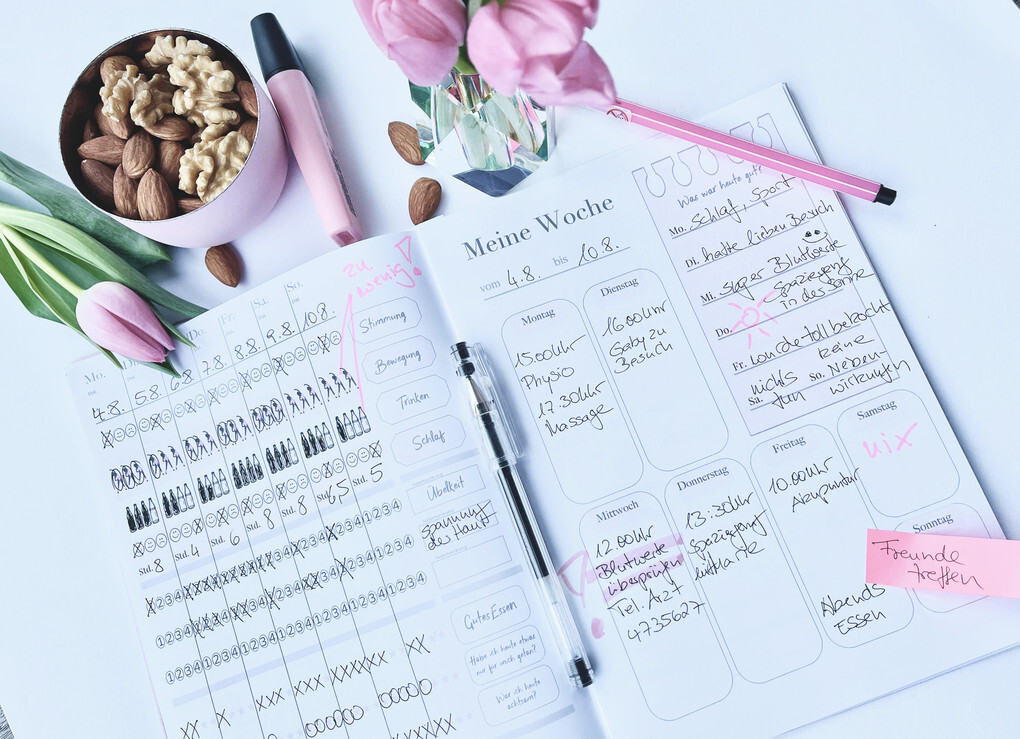 zu
wenig!
Mo. Di. Mi. Do. Fr. Sa. So.
4.8. 5.8. 6.8. 7.8. 8.8. 9.8. 10.8.
Stimmung
Bewegung
Trinken
Schlaf
Std. 8 Std. 4 Std. 6 Std. 8 Std. 8 Std. 6,5 Std. 5
Übelkeit
1234
spannung
des Hauts
1234
1234
Gutes Essen
Habe ich heute etwas
nur für mich getan?
War ich heute
achtsam?
Meine Woche
vom 4.8. bis 10.8.
Montag
15.00 Uhr
Physio
17.30 Uhr
Massage
Dienstag
16.00 Uhr
Gaby zu
Besuch
Mittwoch
12.00 Uhr
Blutwerte
überprüfen
Tel. Arzt
4735627
Donnerstag
13:30 Uhr
Spaziergang
mit
Freitag
10.00 Uhr
Akupunktur
Abends
Essen
Samstag
nix
Sonntag
Freunde
treffen
Was war heute gut?
Mo. Schlaf, Sport
Di. hatte lieben Besuch
Mi. super Blutwerte
Do. Spaziergang
in der Sonne
Fr. toll bekocht
Sa. nichts
tun
So. keine
Neben-
wirkungen